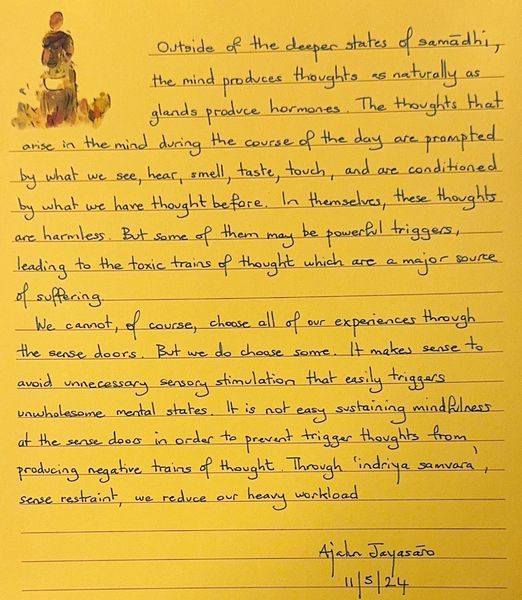 Outside of the deeper states of samādhi,
the mind produces thoughts as naturally as
glands produce hormones. The thoughts that
arise in the mind during the course of the day are prompted
by what we see, hear, smell, taste, touch, and are conditioned
by what we have thought before. In themselves, these thoughts
are harmless. But some of them may be powerful triggers,
leading to the toxic trains of thought which are a major source
of suffering.
We cannot, of course, choose all of our experiences through
the sense doors. But we do choose some. It makes sense to
avoid unnecessary sensory stimulation that easily triggers
unwholesome mental states. It is not easy sustaining mindfulness
at the sense doors in order to prevent trigger thoughts from
producing negative trains of thought. Through 'indriya samvara',
sense restraint, we reduce our heavy workload
Ajahn Jayasāro
11/5/24